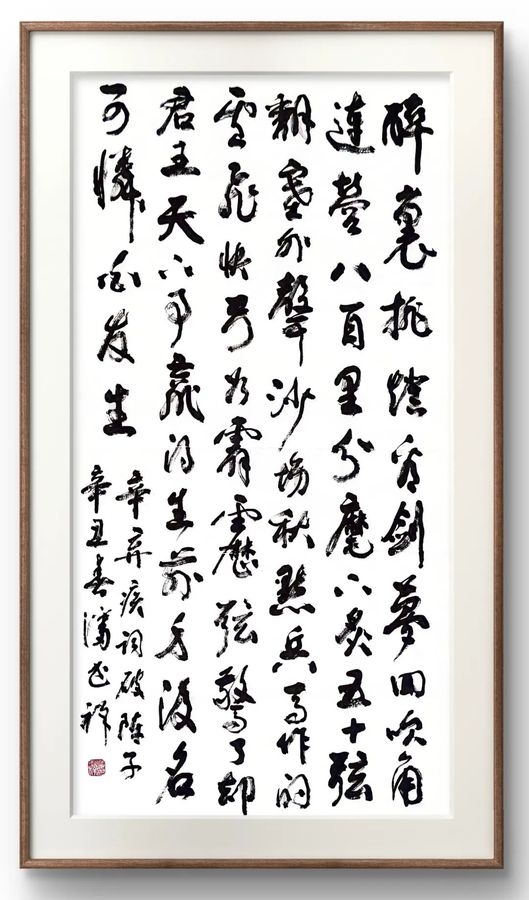 醉裏挑燈看劍夢回吹角
連營八百里分麾下炙五十弦
翻塞外聲沙場秋點兵馬作的
盧飛快弓如霹靂弦驚了却
君王天下事贏得生前身後名
可憐白发生
辛弃疾詞破陣子
辛丑春